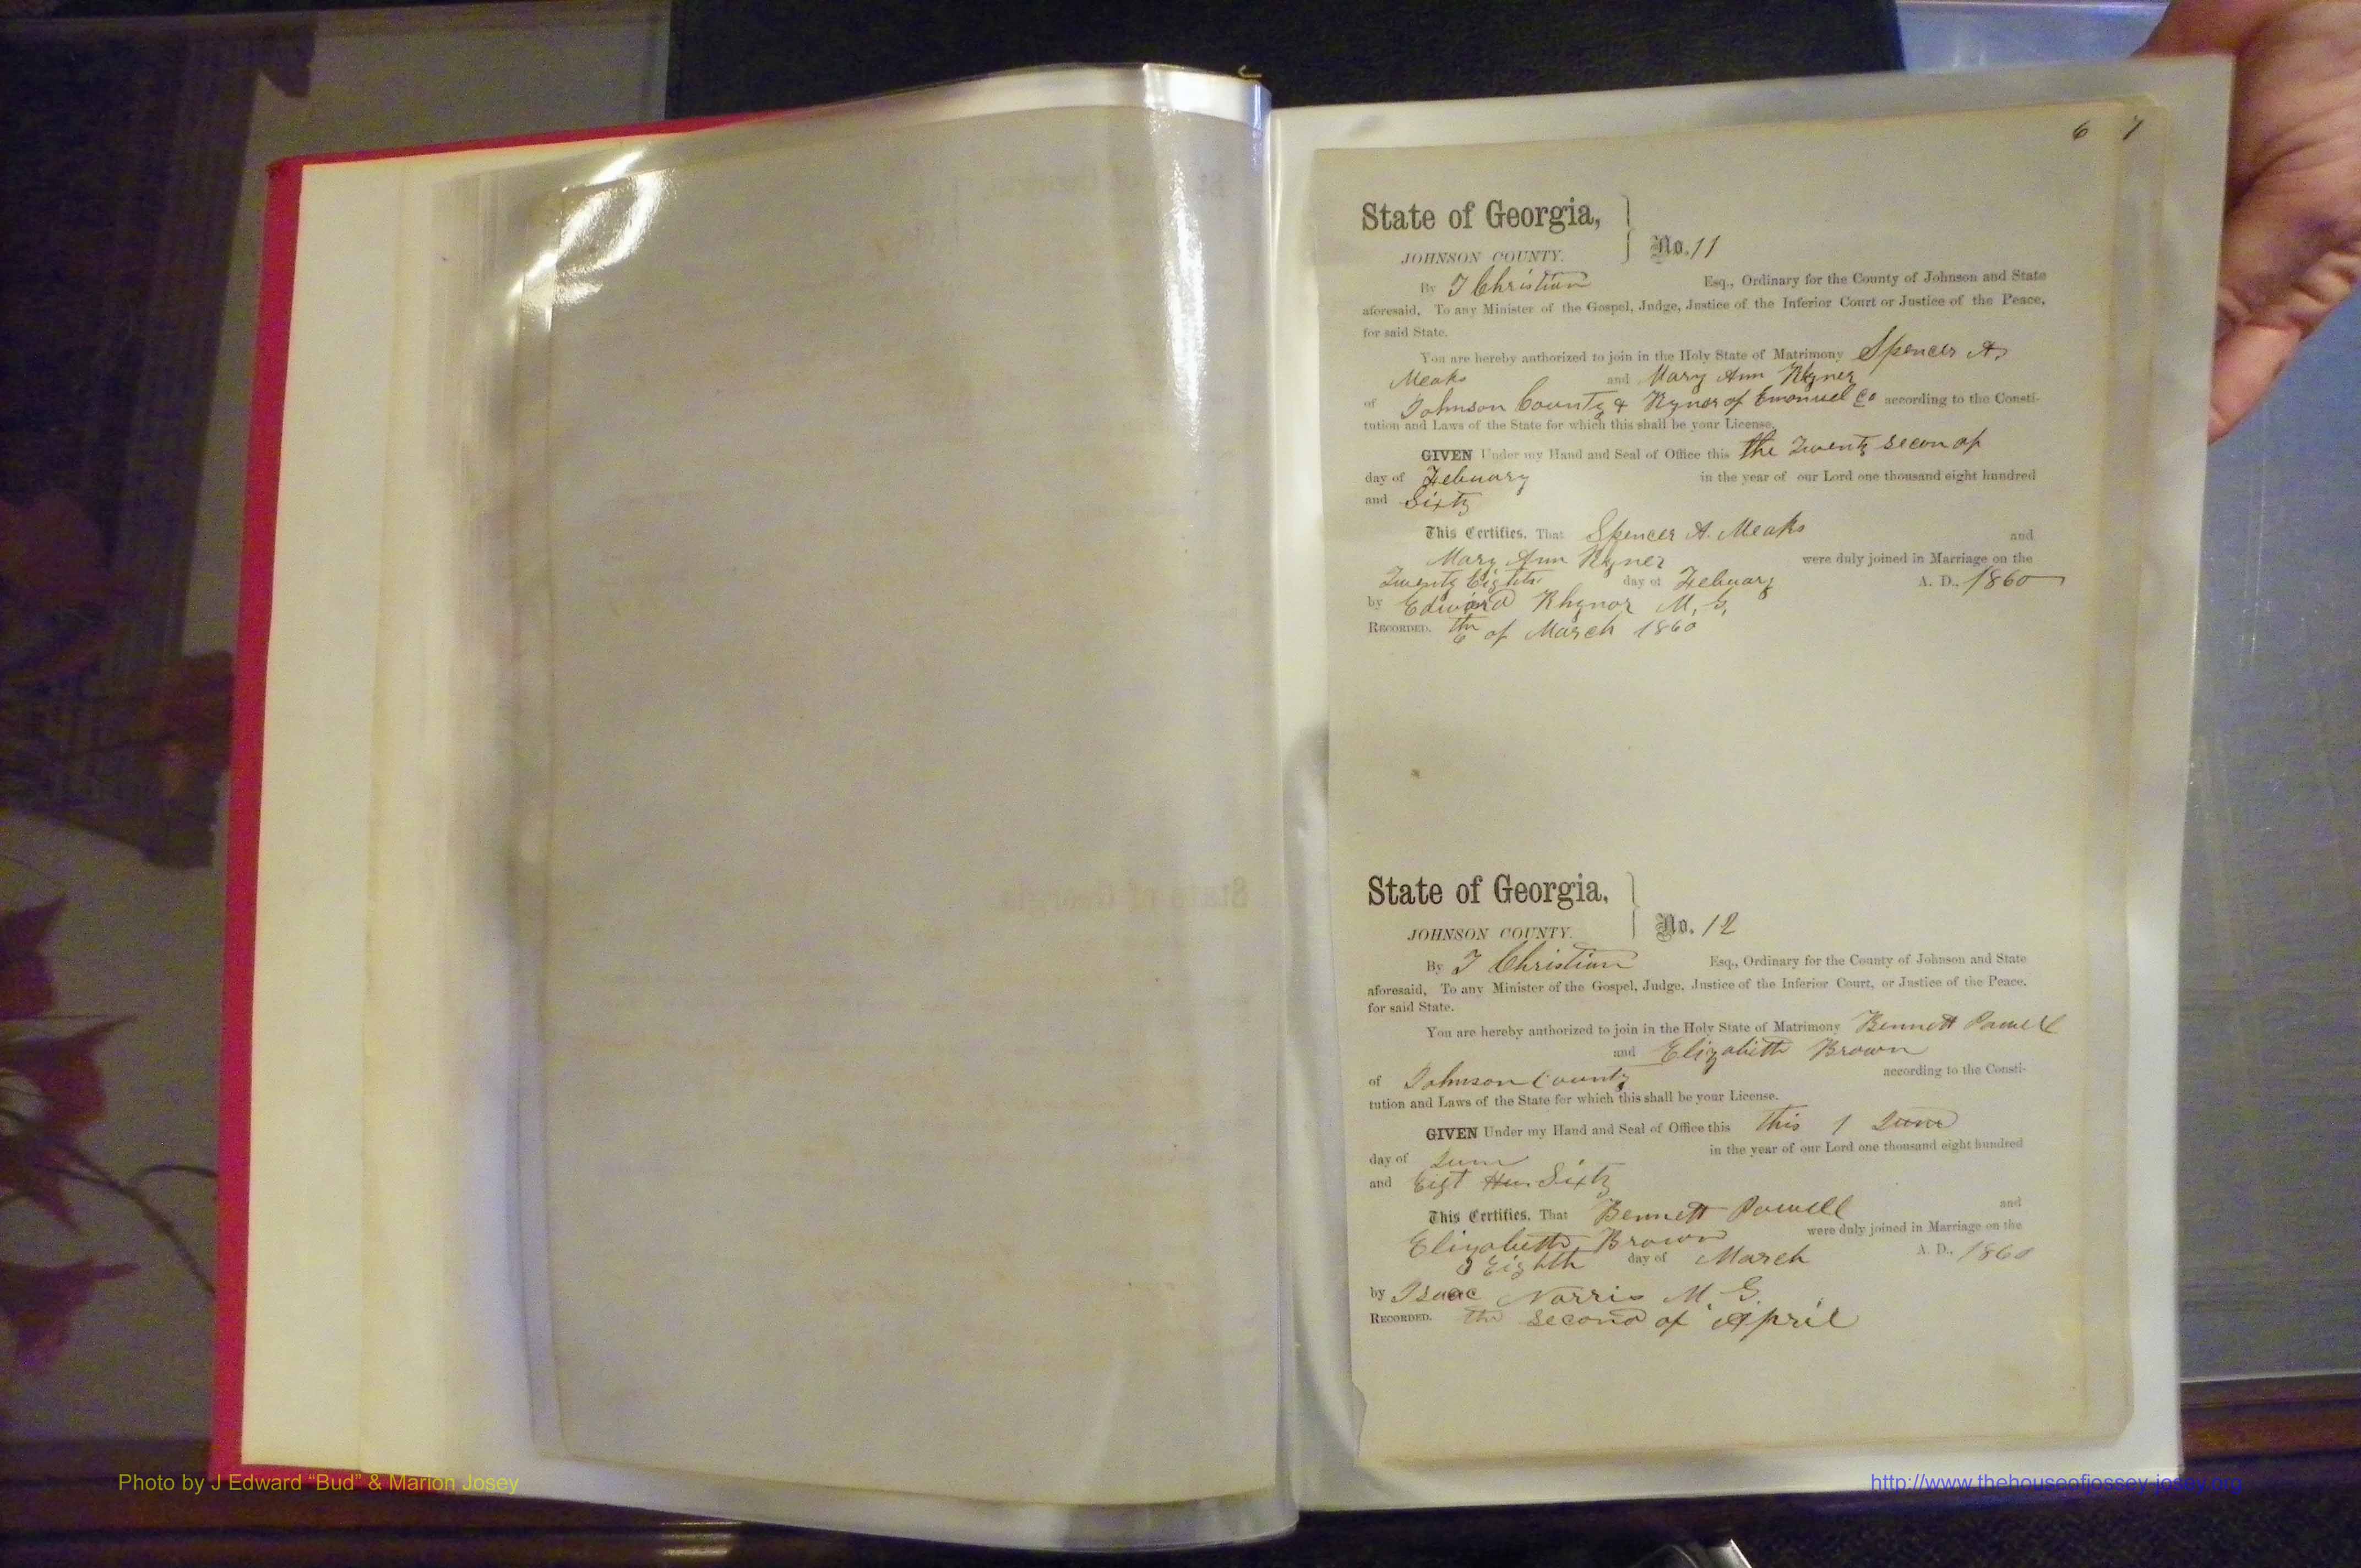 6 7
State of Georgia,
JOHNSON COUNTY.
No. 11
By J Christian Esq., Ordinary for the County of Johnson and State
aforesaid, To any Minister of the Gospel, Judge, Justice of the Inferior Court or Justice of the Peace,
for said State.
You are hereby authorized to join in the Holy State of Matrimony Spencer A.
Meaks and Mary Ann
of Johnson County & of Emanuel Co according to the Consti-
tution and Laws of the State for which this shall be your License.
GIVEN Under my Hand and Seal of Office this the Twenty secon of
day of Febuary in the year of our Lord one thousand eight hundred
and Sixty
This Certifies, That Spencer A. Meaks and
Mary Ann were duly joined in Marriage on the
Twenty Eighth day of Febuary A. D., 1860
by Edward Rhynor M. G.
RECORDED. 6 of March 1860
State of Georgia,
JOHNSON COUNTY.
No. 12
By J Christian Esq., Ordinary for the County of Johnson and State
aforesaid, To any Minister of the Gospel, Judge, Justice of the Inferior Court, or Justice of the Peace,
for said State.
You are hereby authorized to join in the Holy State of Matrimony Bennett Powell
and Elizabeth Brown
of Johnson County according to the Consti-
tution and Laws of the State for which this shall be your License.
GIVEN Under my Hand and Seal of Office this this 1 June
day of June in the year of our Lord one thousand eight hundred
and Sixty
This Certifies, That Bennett Powell and
Elizabeth Brown were duly joined in Marriage on the
Eighth day of March A. D., 1860
by Isaac Norris M G.
RECORDED. the second of April
State of Georgia
Photo by J Edward “Bud” & Marion Josey
http://www.thehouseofjossey-josey.org